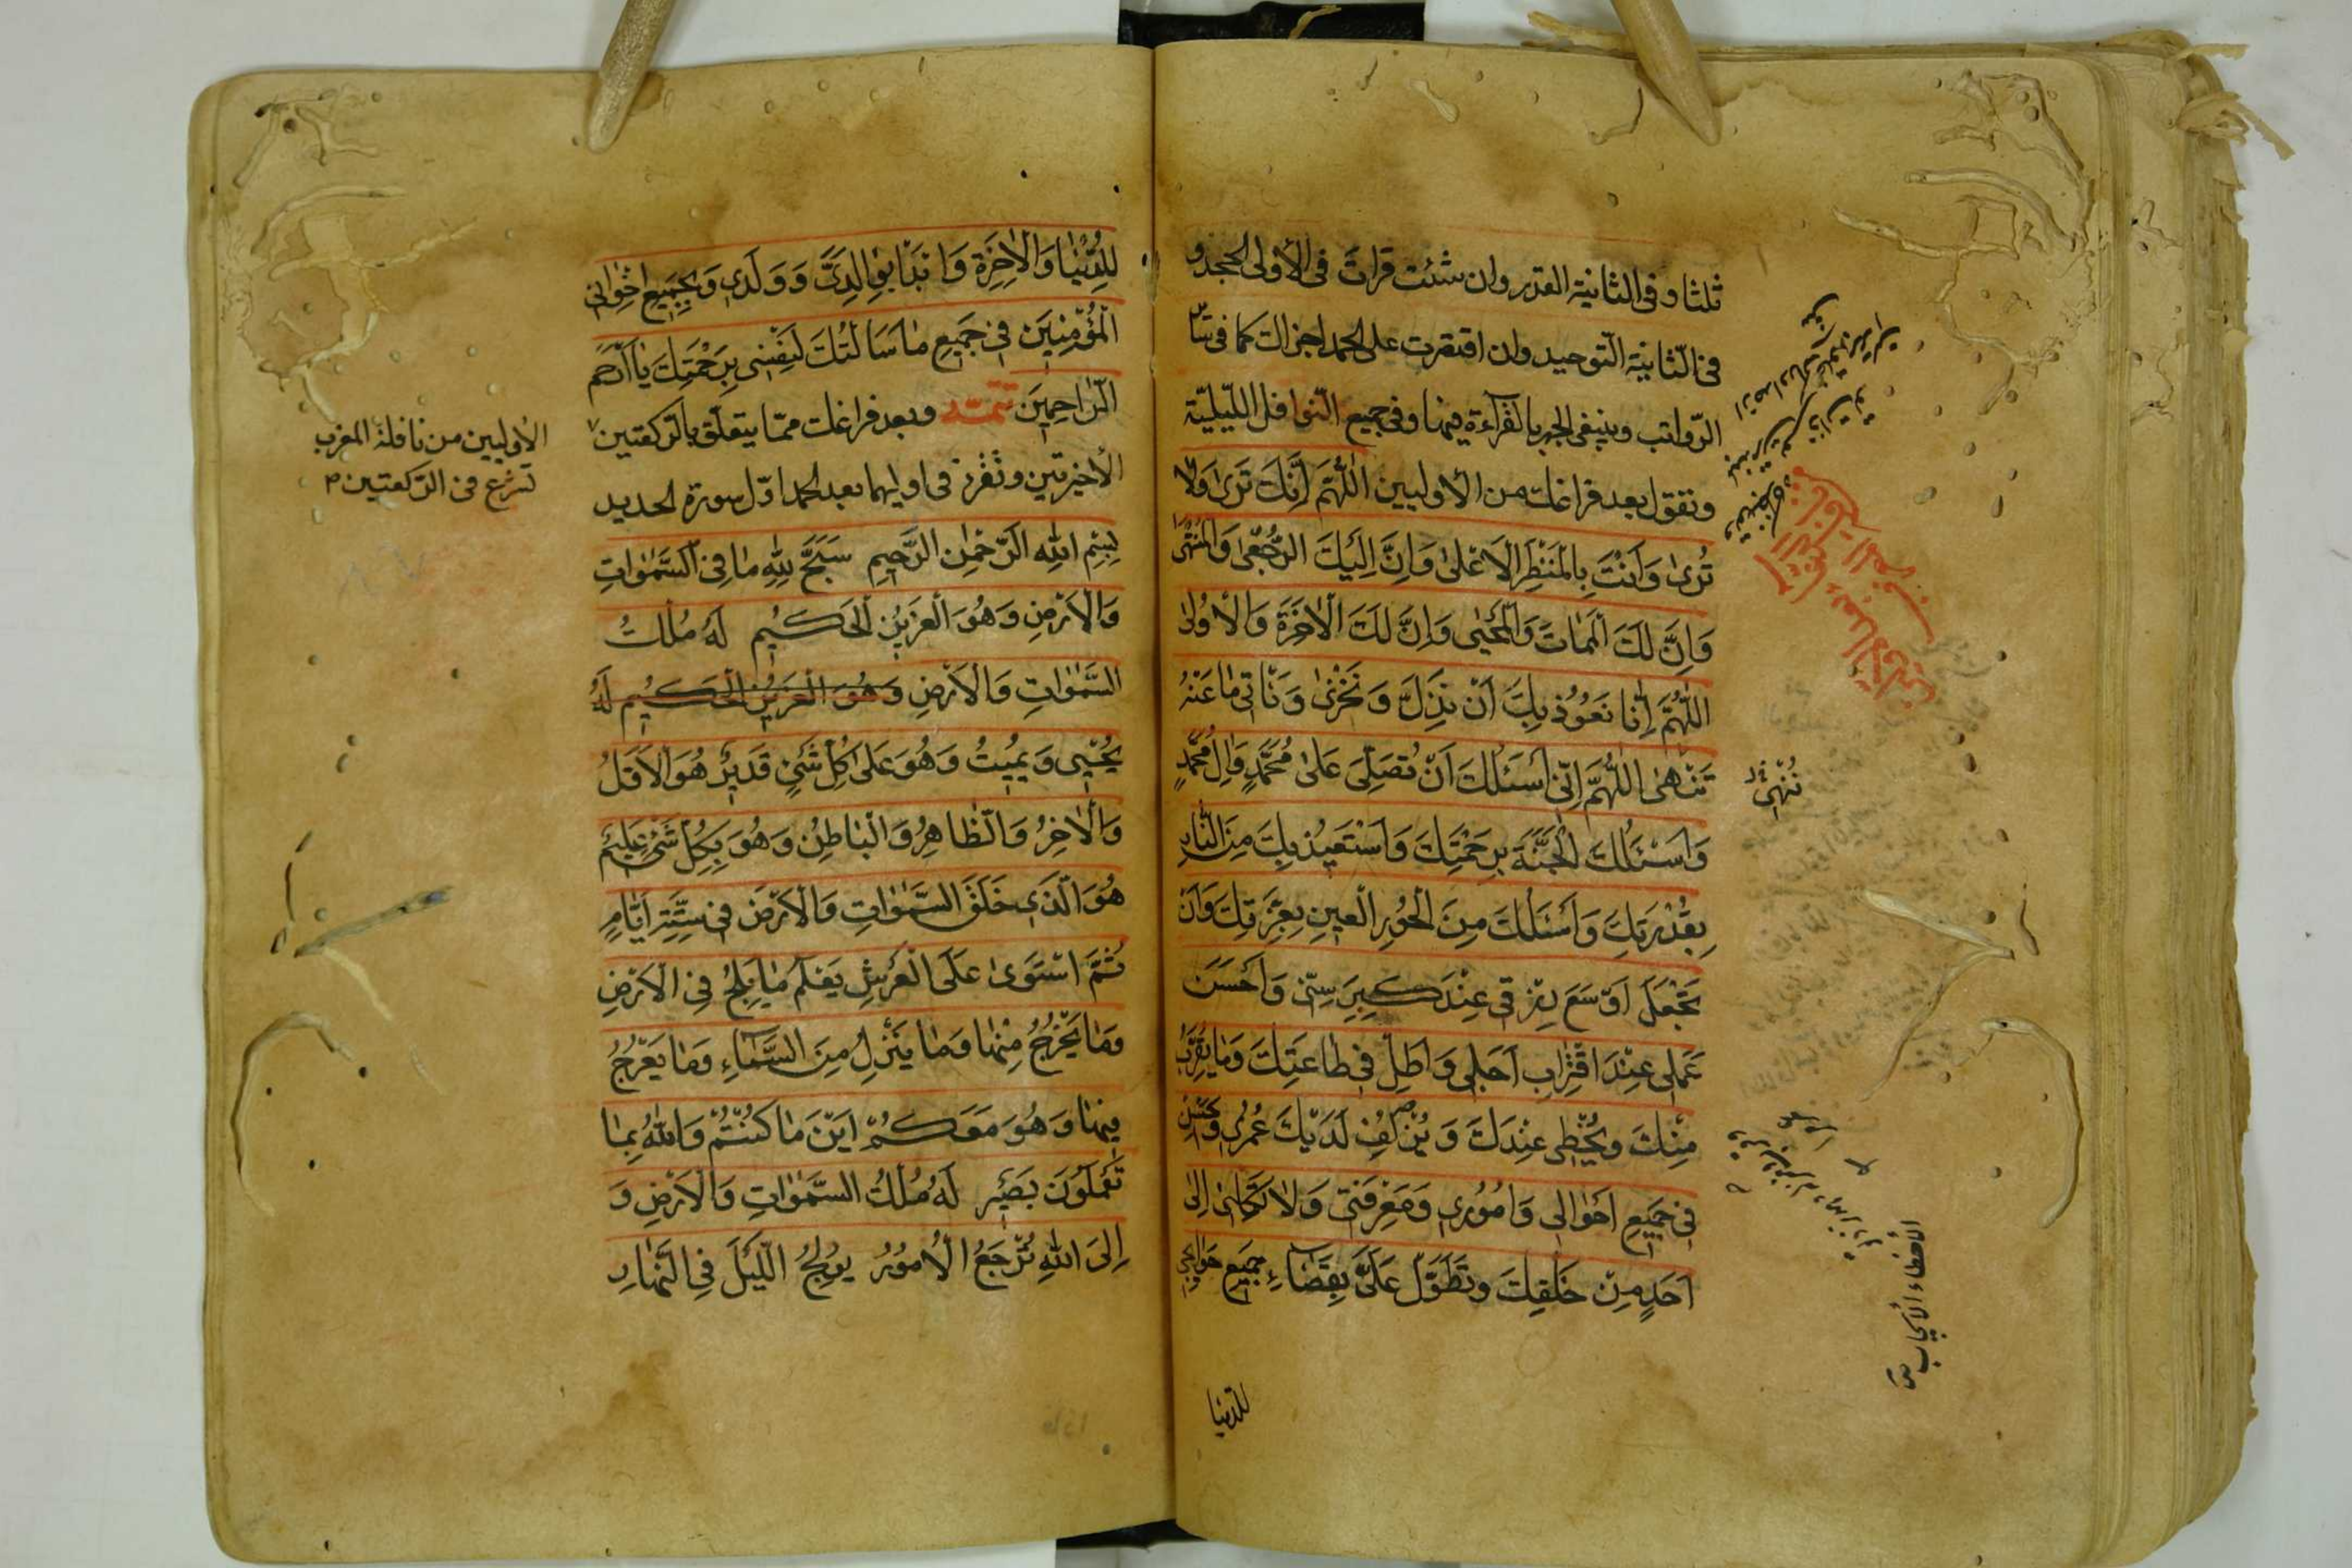 ثلثا وفى الثانية القدر وان شئت قرات فى الأولى الجحد و
فى الثانية التوحيد وان اقتصرت على الحمد اجزاك كما فى سائر
الرواتب وينبغى الجهر بالقرآءة فيهما وفى جميع النوافل الليلية
وتقول بعد فراغك من الأوليين اَللّٰهُمَّ اِنَّكَ تَرىٰ وَلاٰ
تُرىٰ وَاَنْتَ بِالْمَنْظَرِ الْاَعْلىٰ وَاِنَّ اِلَيْكَ الرُّجْعىٰ وَالْمُنْتَهىٰ
وَاِنَّ لَكَ الْمَمٰاتَ وَالْمَحْيٰى وَاِنَّ لَكَ الْاٰخِرَةَ وَالْاُولىٰ
اَللّٰهُمَّ اِنّٰا نَعُوذُ بِكَ اَنْ نَذِلَّ وَنَخْزىٰ وَنَأْتِىَ مٰا عَنْهُ
تَنْهىٰ اَللّٰهُمَّ اِنّى اَسْئَلُكَ اَنْ تُصَلِّىَ عَلىٰ مُحَمَّدٍ وَاٰلِ مُحَمَّدٍ
نُنْهىٰ
وَاَسْئَلُكَ الْجَنَّةَ بِرَحْمَتِكَ وَاَسْتَعيذُ بِكَ مِنَ النّٰارِ
بِقُدْرَتِكَ وَاَسْئَلُكَ مِنَ الْحُورِ الْعينِ بِعِزَّتِكَ وَاَنْ
تَجْعَلَ اَوْسَعَ رِزْقى عِنْدَ كِبَرِ سِنّى وَاَحْسَنَ
عَمَلى عِنْدَ اقْتِرٰابِ اَجَلى وَاَطِلْ فى طٰاعَتِكَ وَمٰا يُقَرِّبُ
مِنْكَ وَيُحْظى عِنْدَكَ وَيُزْلِفُ لَدَيْكَ عُمْرى وَاَحْسِنْ
فى جَميعِ اَحْوٰالى وَاُمُورى وَمَعْرِفَتى وَلاٰ تَكِلْنى اِلىٰ
اَحَدٍ مِنْ خَلْقِكَ وَتَطَوَّلْ عَلَىَّ بِقَضٰاءِ جَميعِ حَوٰائِجى
للدنيا
لِلدُّنْيٰا وَالْاٰخِرَةِ وَابْدَأْ بِوٰالِدَىَّ وَوَلَدى وَجَميعِ اِخْوٰانى
الْمُؤْمِنينَ فى جَميعِ مٰا سَاَلْتُكَ لِنَفْسى بِرَحْمَتِكَ يٰا اَرْحَمَ
الرّٰاحِمينَ تتمة وبعد فراغك ممّا يتعلق بالركعتين
الأوليين من نافلة المغرب
تشرع فى الركعتين
الأخيرتين وتقرء فى اوليهما بعد الحمد اوّل سورة الحديد
بِسْمِ اللهِ الرَّحْمٰنِ الرَّحيمِ سَبَّحَ لِلّٰهِ مٰا فِى السَّمٰوٰاتِ
وَالْاَرْضِ وَهُوَ الْعَزيزُ الْحَكيمُ لَهُ مُلْكُ
السَّمٰوٰاتِ وَالْاَرْضِ وَهُوَ الْعَزيزُ الْحَكيمُ لَهُ
يُحْيى وَيُميتُ وَهُوَ عَلىٰ كُلِّ شَىْءٍ قَديرٌ هُوَ الْاَوَّلُ
وَالْاٰخِرُ وَالظّٰاهِرُ وَالْبٰاطِنُ وَهُوَ بِكُلِّ شَىْءٍ عَليمٌ
هُوَ الَّذى خَلَقَ السَّمٰوٰاتِ وَالْاَرْضَ فى سِتَّةِ اَيّٰامٍ
ثُمَّ اسْتَوىٰ عَلَى الْعَرْشِ يَعْلَمُ مٰا يَلِجُ فِى الْاَرْضِ
وَمٰا يَخْرُجُ مِنْهٰا وَمٰا يَنْزِلُ مِنَ السَّمٰاءِ وَمٰا يَعْرُجُ
فيهٰا وَهُوَ مَعَكُمْ اَيْنَ مٰا كُنْتُمْ وَاللهُ بِمٰا
تَعْمَلُونَ بَصيرٌ لَهُ مُلْكُ السَّمٰوٰاتِ وَالْاَرْضِ وَ
اِلَى اللهِ تُرْجَعُ الْاُمُورُ يُولِجُ اللَّيْلَ فِى النَّهٰارِ